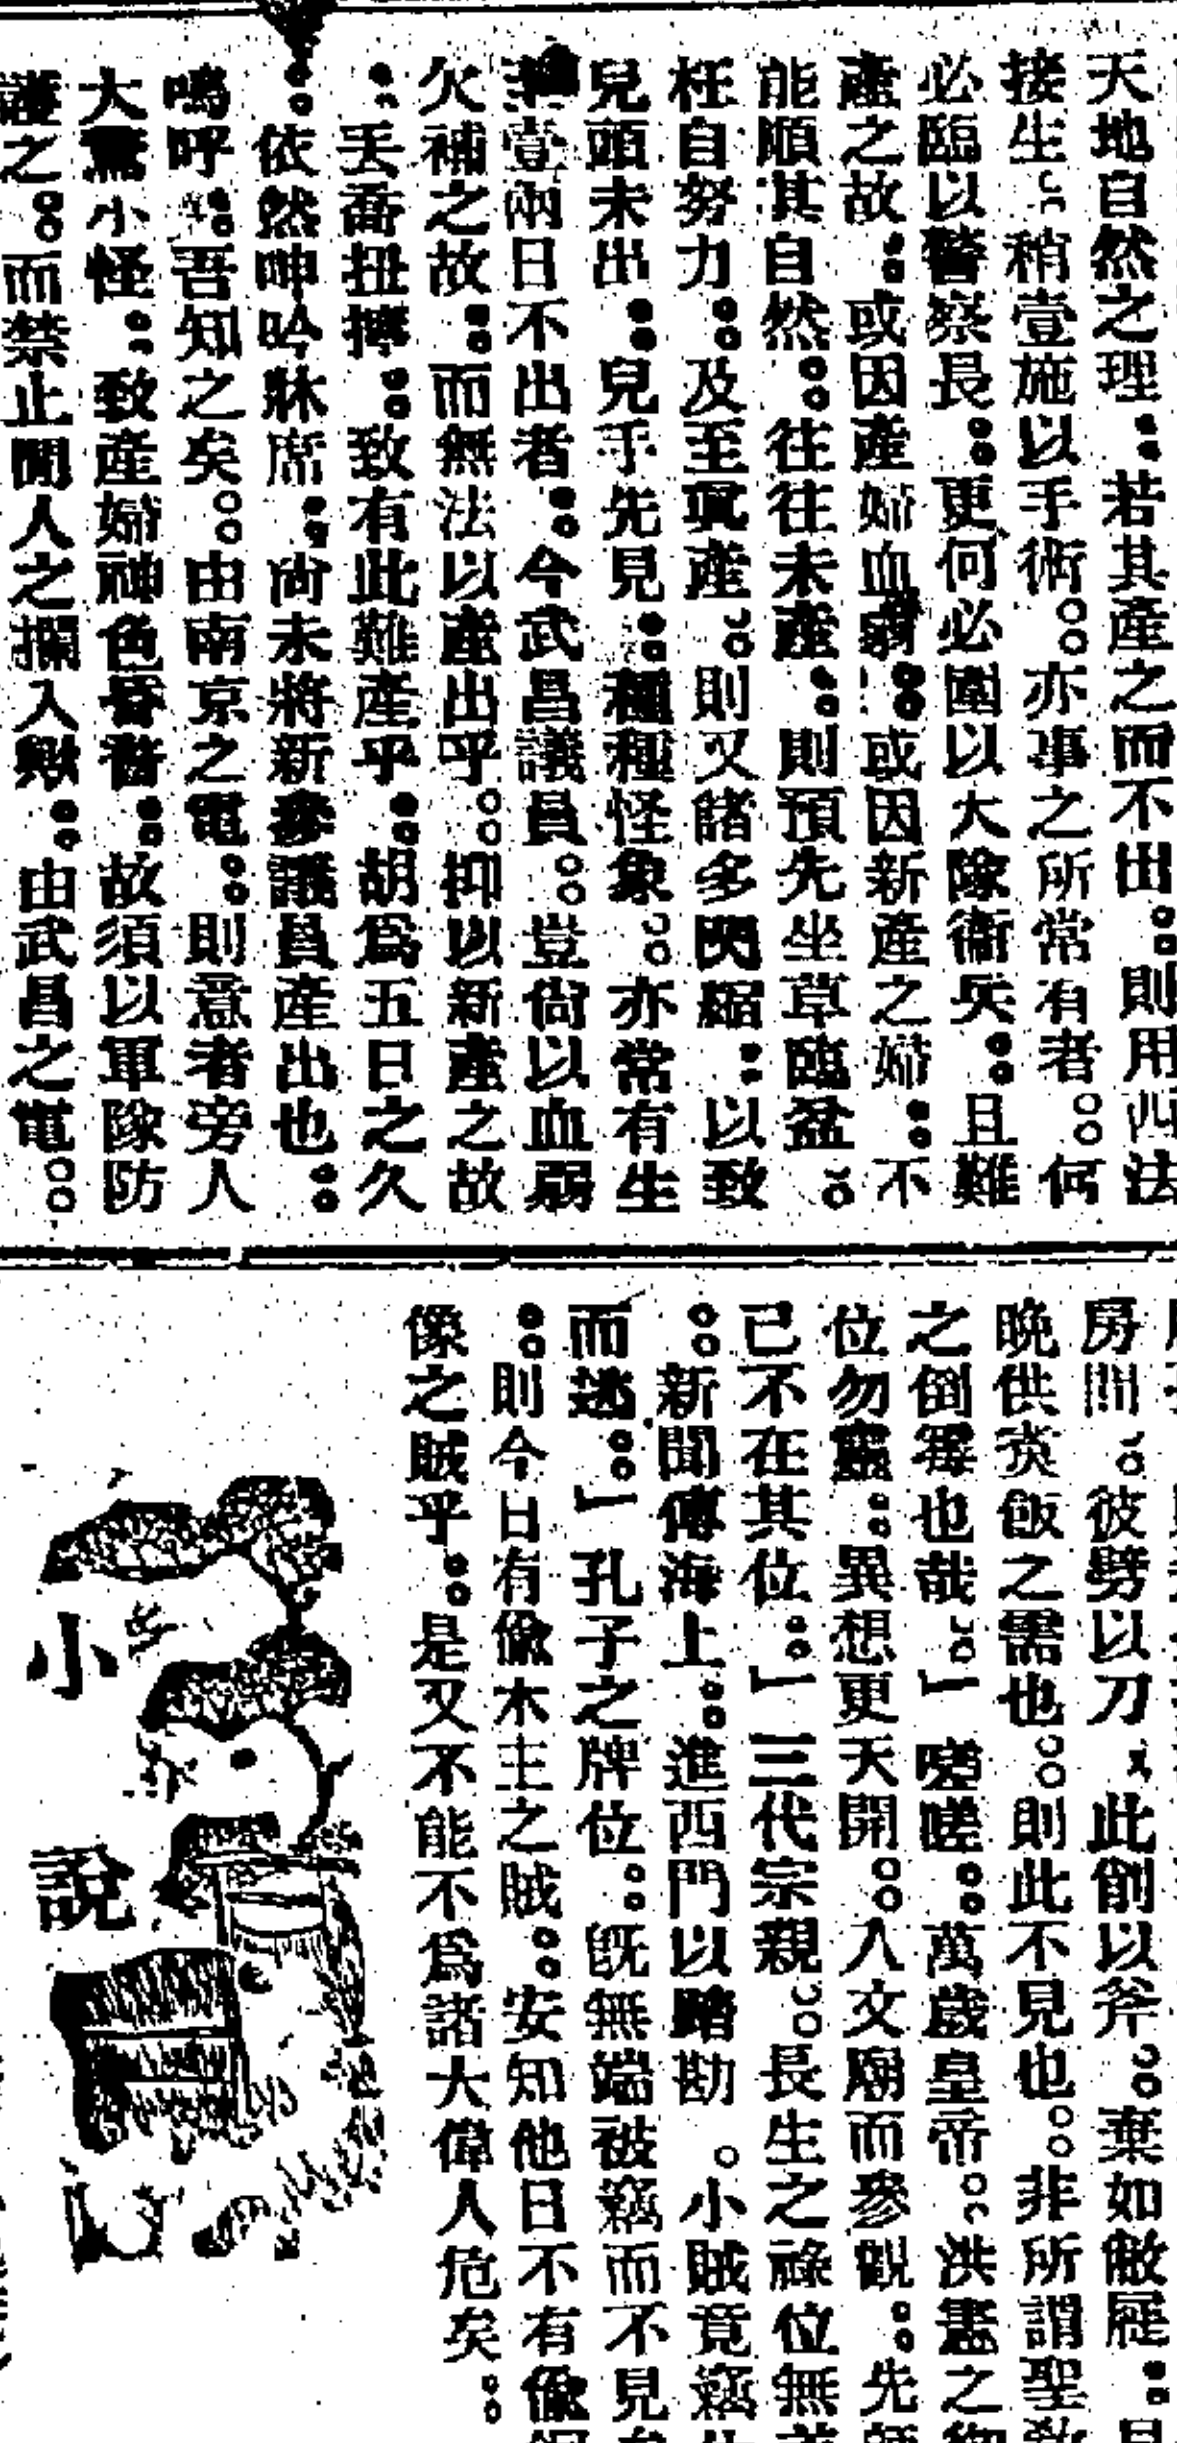 天地自然之理。若其產之而不出。則用西法
接生。稍壹施以手術。亦事之所常有者。何
必臨以警察長。更何必圍以大隊衞兵。且難
產之故。或因產婦血弱。或因新產之婦。不
能順其自然。往往未產。則預先坐草臨盆。
枉自努力。及至眞產。則又諸多閃縮。以致
兒頭未出。兒手先見。種種怪象。亦常有生
壹兩日不出者。今武昌議員。豈尙以血弱
欠補之故。而無法以產出乎。抑以新產之故
。丟喬扭擰。致有此難產乎。胡爲五日之久
。依然呻吟牀席。尙未將新參議員產出也。
嗚呼。吾知之矣。由南京之電。則意者旁人
大驚小怪。致產婦神色昏瞀。故須以軍隊防
護之。而禁止閒人之攔入歟。由武昌之電。
房間。彼劈以刀、此削以斧。棄如敝屣。
晚供炎飯之需也。則此不見也。非所謂聖
之倒霉也哉。」嗟嗟。萬歲皇帝。洪憲之
位勿靈。異想更天開。入文廟而參觀。先
已不在其位。」三代宗親。長生之祿位無
。新聞傳海上。進西門以踏勘。小賊竟竊
而逃。」孔子之牌位。旣無端被竊而不見
。則今日有偷木主之賊。安知他日不有偷
像之賊乎。是又不能不爲諸大偉人危矣。
小說